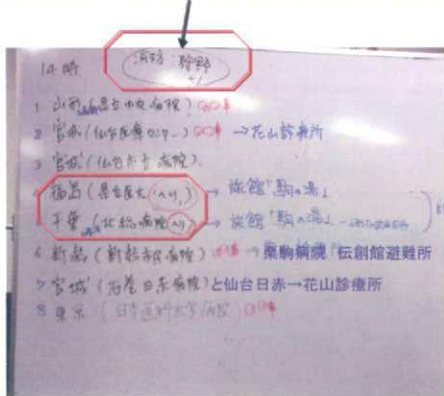 14時 消防:狩野 +1
1 山形(県立中央病院)DR車
2 宮城(仙台医療センター)DR車 →花山診療所
3 宮城(仙台市立病院)
4 福島(県立医大 ヘリ)→ 旅館「駒の湯」
千葉(北総病院 ヘリ)→ 旅館「駒の湯」
6 新潟(新潟市民病院)→栗駒病院 伝創館避難所
7 宮城(石巻日赤病院)と仙台日赤→花山診療所
8 東京(日本医科大学病院)